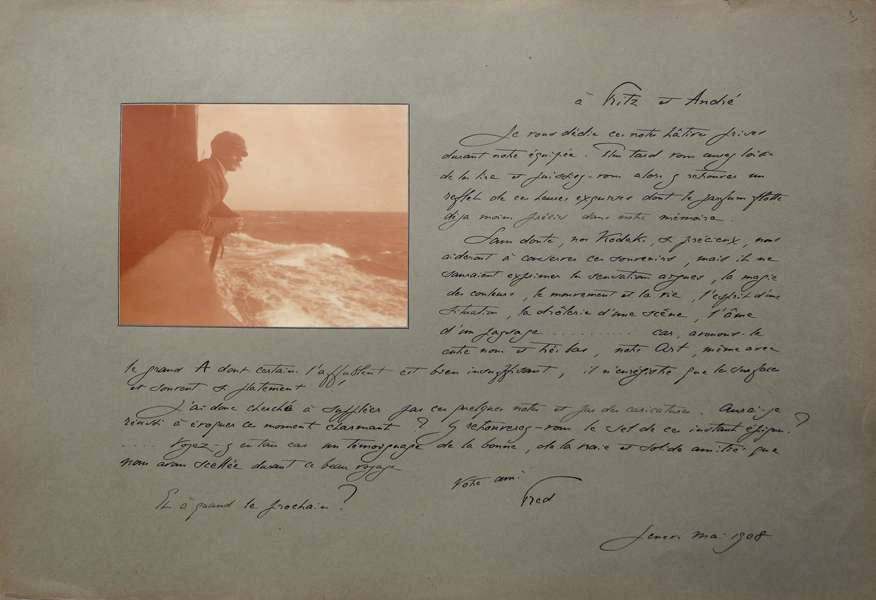 à Fritz et André
Je vous dédie ces notes hâtives prises
durant notre équipée. Plus tard vous aurez loisir
de les lire et puissiez-vous alors y retrouver un
reflet de ces heures exquises dont le parfum flotte
déjà moins précis dans notre mémoire.
Sans doute, nos Kodaks, si précieux, nous
aideront à conserver ces souvenirs, mais ils ne
sauraient exprimer les sensations aigues, la magie
des couleurs, le mouvement et la vie, l'esprit d'une
situation, la drôlerie d'une scène, l'âme
d'un paysage .......... car, avouons-le
entre nous et très bas, notre Art, même avec
le grand A dont certains l'affublent est bien insuffisant, il n'enrégistre que la surface
et souvent si platement!
J'ai donc cherché à suppléer par ces quelques notes et par des caricatures. Aurai-je
réussi à évoquer ces moments charmants? Y retrouverez-vous le sel de ces instants
..... Voyez-y en tous cas un témoignage de la bonne, de la vraie et solide amitié que
nous avons scellée durant ce beau voyage
Votre ami
Fred
Et à quand le prochain?
Mai 1908